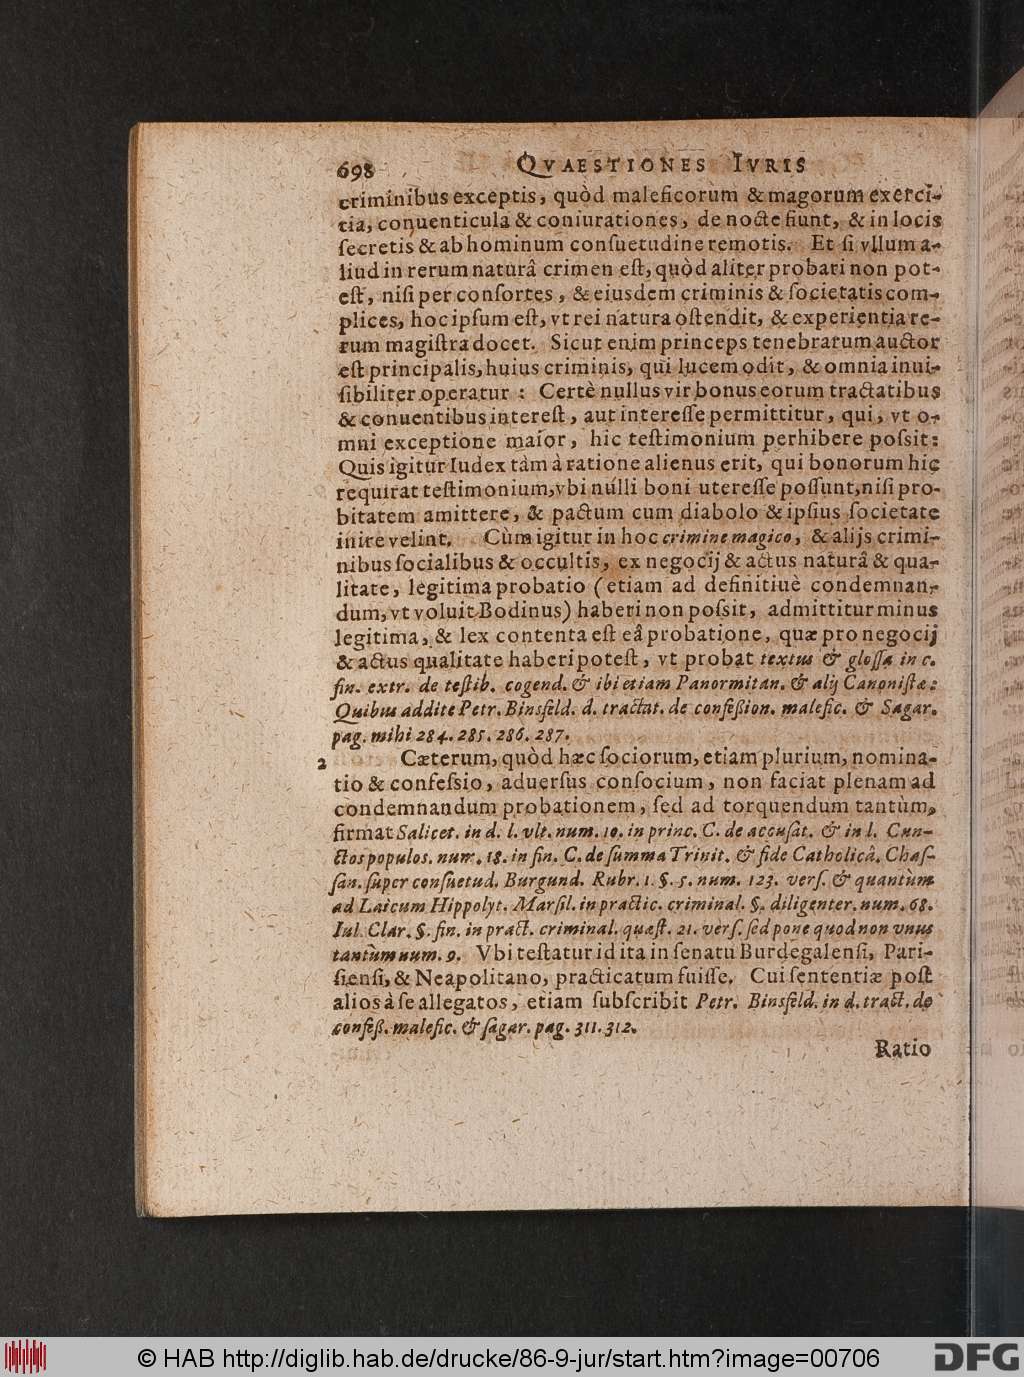 698 QVAESTIONES IVRIS
criminibus exceptis, quòd maleficorum & magorum exerci-
tia, conuenticula & coniurationes, de nocte fiunt, & in locis
ſecretis & ab hominum conſuetudine remotis. Et ſi vllum a-
liud in rerum naturâ crimen eſt, quòd aliter probari non pot-
eſt, niſi per conſortes, & eiusdem criminis & ſocietatis com-
plices, hoc ipſum eſt, vt rei natura oſtendit, & experientia re-
rum magiſtra docet. Sicut enim princeps tenebrarum auctor
eſt principalis, huius criminis, qui lucem odit, & omnia inui-
ſibiliter operatur : Certè nullus vir bonus eorum tractatibus
& conuentibus intereſt, aut intereſſe permittitur, qui, vt o-
mni exceptione maior, hic teſtimonium perhibere poſsit:
Quis igitur Iudex tàm à ratione alienus erit, qui bonorum hic
requirat teſtimonium, vbi nulli boni utereſſe poſſunt, niſi pro-
bitatem amittere, & pactum cum diabolo & ipſius ſocietate
inire velint. Cùm igitur in hoc crimine magico, & alijs crimi-
nibus ſocialibus & occultis, ex negocij & actus naturâ & qua-
litate, legitima probatio (etiam ad definitiuè condemnan-
dum, vt voluit Bodinus) haberi non poſsit, admittitur minus
legitima, & lex contenta eſt eâ probatione, quæ pro negocij
& actus qualitate haberi poteſt, vt probat textus & gloſſa in c.
fin. extr. de teſtib. cogend. & ibi etiam Panormitan. & alij Canoniſtæ:
Quibus addite Petr. Binsfeld. d. tractat. de confeßion. malefic. & Sagar.
pag. mihi 284. 285. 286. 287.
2 Cæterum, quòd hæc ſociorum, etiam plurium, nomina-
tio & confeſsio, aduerſus conſocium, non faciat plenam ad
condemnandum probationem, ſed ad torquendum tantùm,
firmat Salicet. in d. l. vlt. num. 10. in princ. C. de accuſat. & in l. Cun-
ctos populos. num. 18. in fin. C. de ſumma Trinit. & fide Catholicâ. Chaſ-
ſan. ſuper conſuetud. Burgund. Rubr. 1. §. 5. num. 123. verſ. & quantùm
ad Laicum Hippolyt. Marſil. in practic. criminal. §. diligenter. num. 68.
Iul. Clar. §. fin. in pract. criminal. quæſt. 21. verſ. ſed pone quod non vnus
tantùm num. 9. Vbi teſtatur id ita in ſenatu Burdegalenſi, Pari-
ſienſi, & Neapolitano, practicatum fuiſſe. Cui ſententiæ poſt
alios à ſe allegatos, etiam ſubſcribit Petr. Binsfeld. in d. tract. de
confeß. malefic. & ſagar. pag. 311. 312.
Ratio
© HAB http://diglib.hab.de/drucke/86-9-jur/start.htm?image=00706
DFG